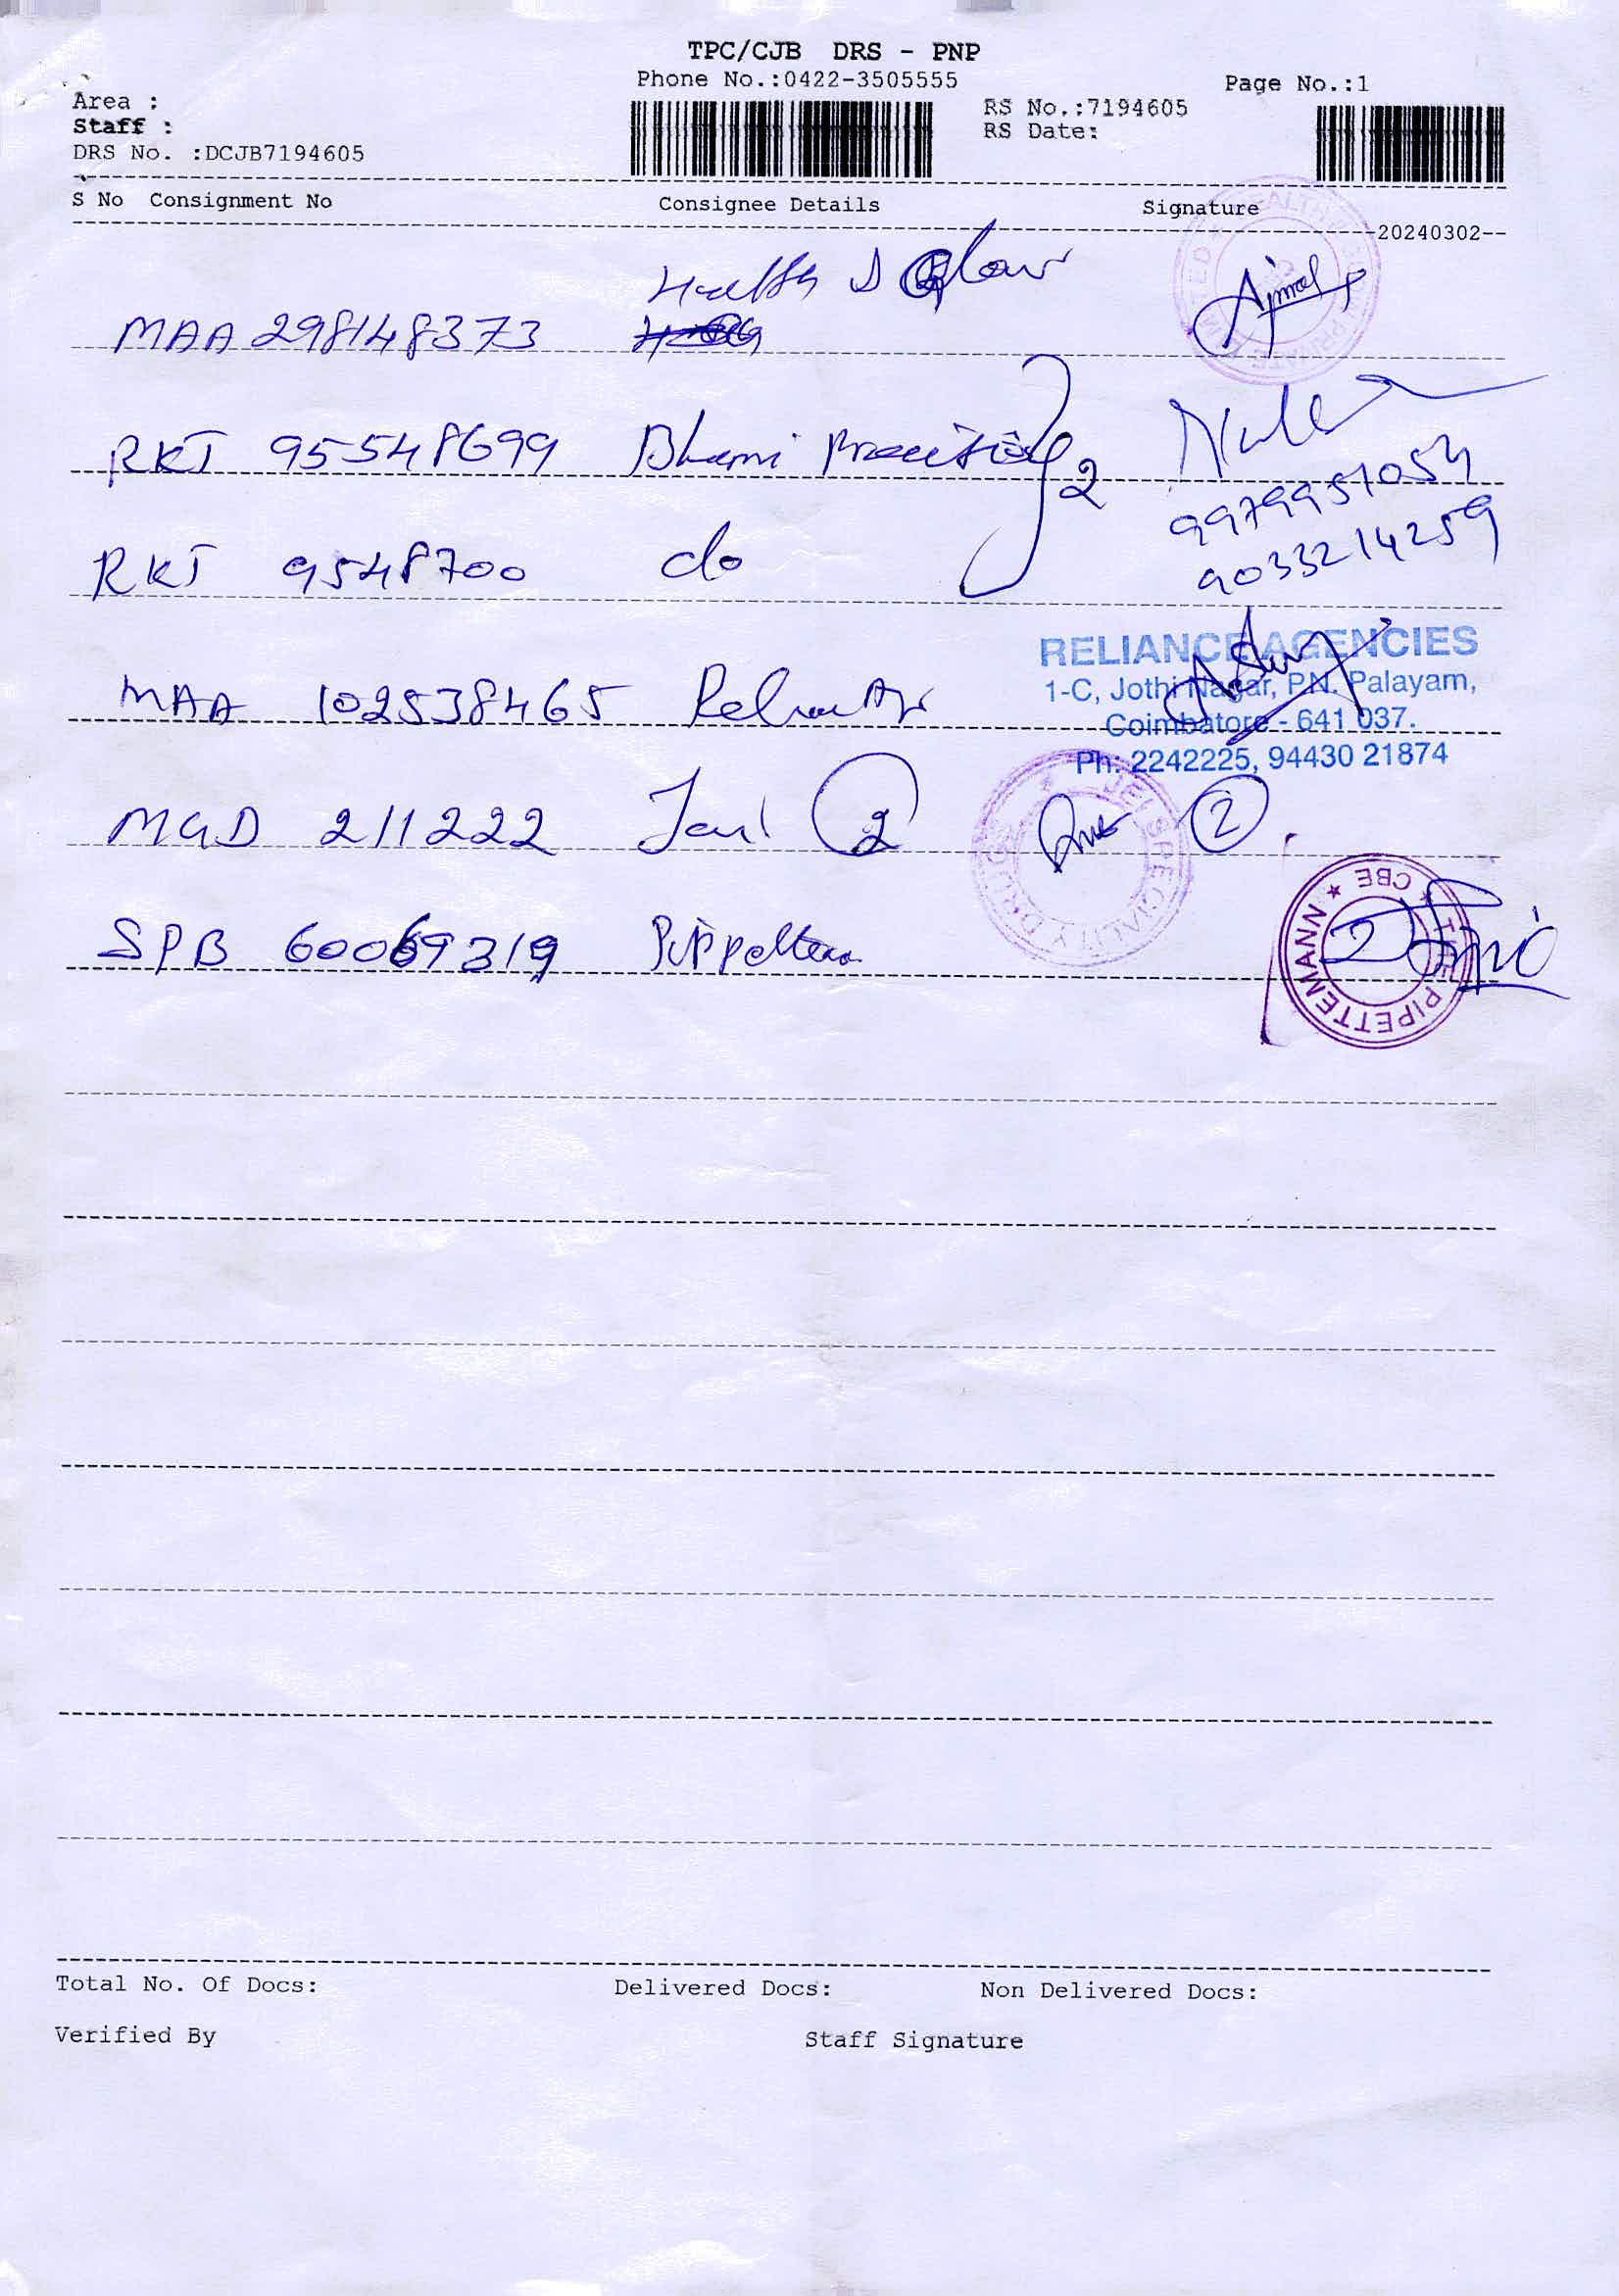 TPC/CJB DRS - PNP
Phone No.:0422-3505555
Page No.:1
Area :
Staff :
DRS No. :DCJB7194605
RS No.:7194605
RS Date:
S No Consignment No Consignee Details Signature
20240302
MAA 298148373 Health
Ajmal
RKT 95548699 Bhumi 2
9979951054
9033214259
RKT 9548700 do
RELIANCE AGENCIES
1-C, Jothi Nagar, P.N. Palayam,
Coimbatore - 641 037.
Ph: 2242225, 94430 21874
MAA 102538465
MGD 211222 2 2
JEI SPECIALITY DRUGS
SPB 60069319
THE PIPETTEMANN ★ CBE ★
Total No. Of Docs: Delivered Docs: Non Delivered Docs:
Verified By Staff Signature